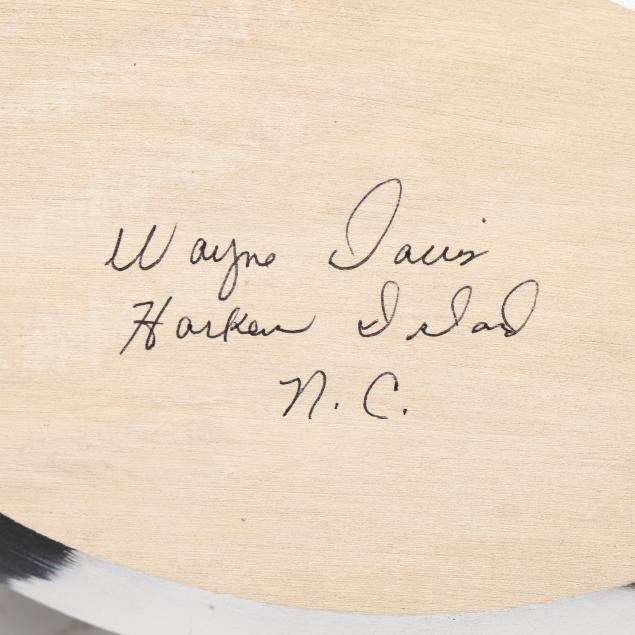 Wayne Davis
Harken Island
N.C.